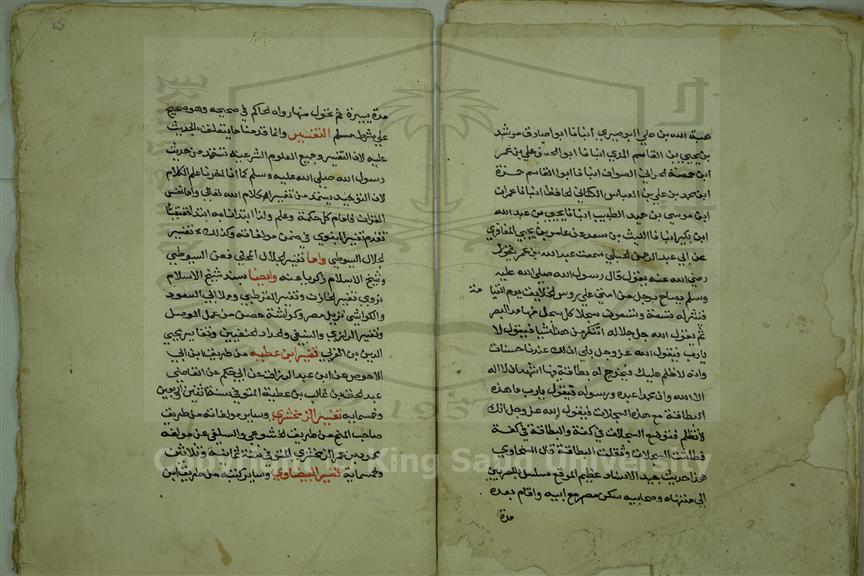 هبة الله بن علي البوصيري انبانا ابو صادق مرشد
بن يحيى بن القاسم المدني انبانا ابو الحسن علي بن عمر
ابن حمصة الحراني الصواف انبانا ابو القاسم حمزة
ابن محمد بن علي بن العباس الكناني الحافظ انبانا عمران
ابن موسى بن حميد الطبيب انبانا يحيى بن عبد الله
ابن بكير انبانا الليث بن سعد عن عامر بن يحيى المعافري
عن ابي عبد الرحمن الحبلي سمعت عبد الله بن عمر يقول
رضي الله عنه يقول قال رسول الله صلى الله عليه
وسلم يصاح برجل من امتي على روس الخلايق يوم القيامة
فتنشر له تسعة وتسعون سجلا كل سجل منها مد البصر
ثم يقول الله جل جلاله اتنكر من هذا شيا فيقول لا
يارب فيقول الله عز وجل بلى ان لك عندنا حسنات
وانه لا ظلم عليك فيخرج له بطاقة فيها اشهد ان لا اله
الا الله وان محمدا عبده ورسوله فيقول يارب ما هذه
البطاقة مع هذه السجلات فيقول الله عز وجل انك
لا تظلم فتوضع السجلات في كفة والبطاقة في كفة
فطاشت السجلات وثقلت البطاقة قال السخاوي
هذا حديث جيد الاسناد عظيم الموقع مسلسل بالمصريين
الى منتهاه وصحابيه سكن مصر مع ابيه واقام بعده
مدة
مدة يسيرة ثم تحول منها رواه الحاكم في صحيحه وهو صحيح
على شرط مسلم التفسير وانما قدمنا ما يتعلق بالحديث
عليه لان التفسير وجميع العلوم الشرعية تستمد من حديث
رسول الله صلى الله عليه وسلم كما انا اخرنا علم الكلام
لان التوحيد يستمد من تفسير كلام الله تعالى واما نفس
القران فامام كل حكمة وعلم ولذا ابتدانا به ابتدا حقيقيا
تقدم تفسير البغوي في ضمن مولفاته وكذلك تفسير
الجلال السيوطي واما تفسير الجلال المحلي فعن السيوطي
وشيخ الاسلام زكريا عنه وايضا بسند شيخ الاسلام
نروي تفسير الخازن وتفسير القرطبي وملا ابي السعود
والكواشي نزيل مصر وكواشة حصن من عمل الموصل
وتفسير الرازي والنسفي والحداد الحنفيين وتفاسير محيي
الدين بن العربي تفسير ابن عطيه من طريق ابن ابي
الاحوص عن ابن عبد الرزاق عن ابي حكم عن القاضي
عبد الحق بن غالب بن عطية المتوفى سنة اثنين اربعين
وخمسماية تفسير الزمخشري وساير مولفاته من طريق
صاحب المنح من طريق الخشوعي والسلفي عن مولفه
محمود بن عمر الزمخشري المتوفى سنة ثمانية وثلاثين
وخمسماية تفسير البيضاوي وساير كتبه من طريق ابن
Copyright © King Saud University
1957